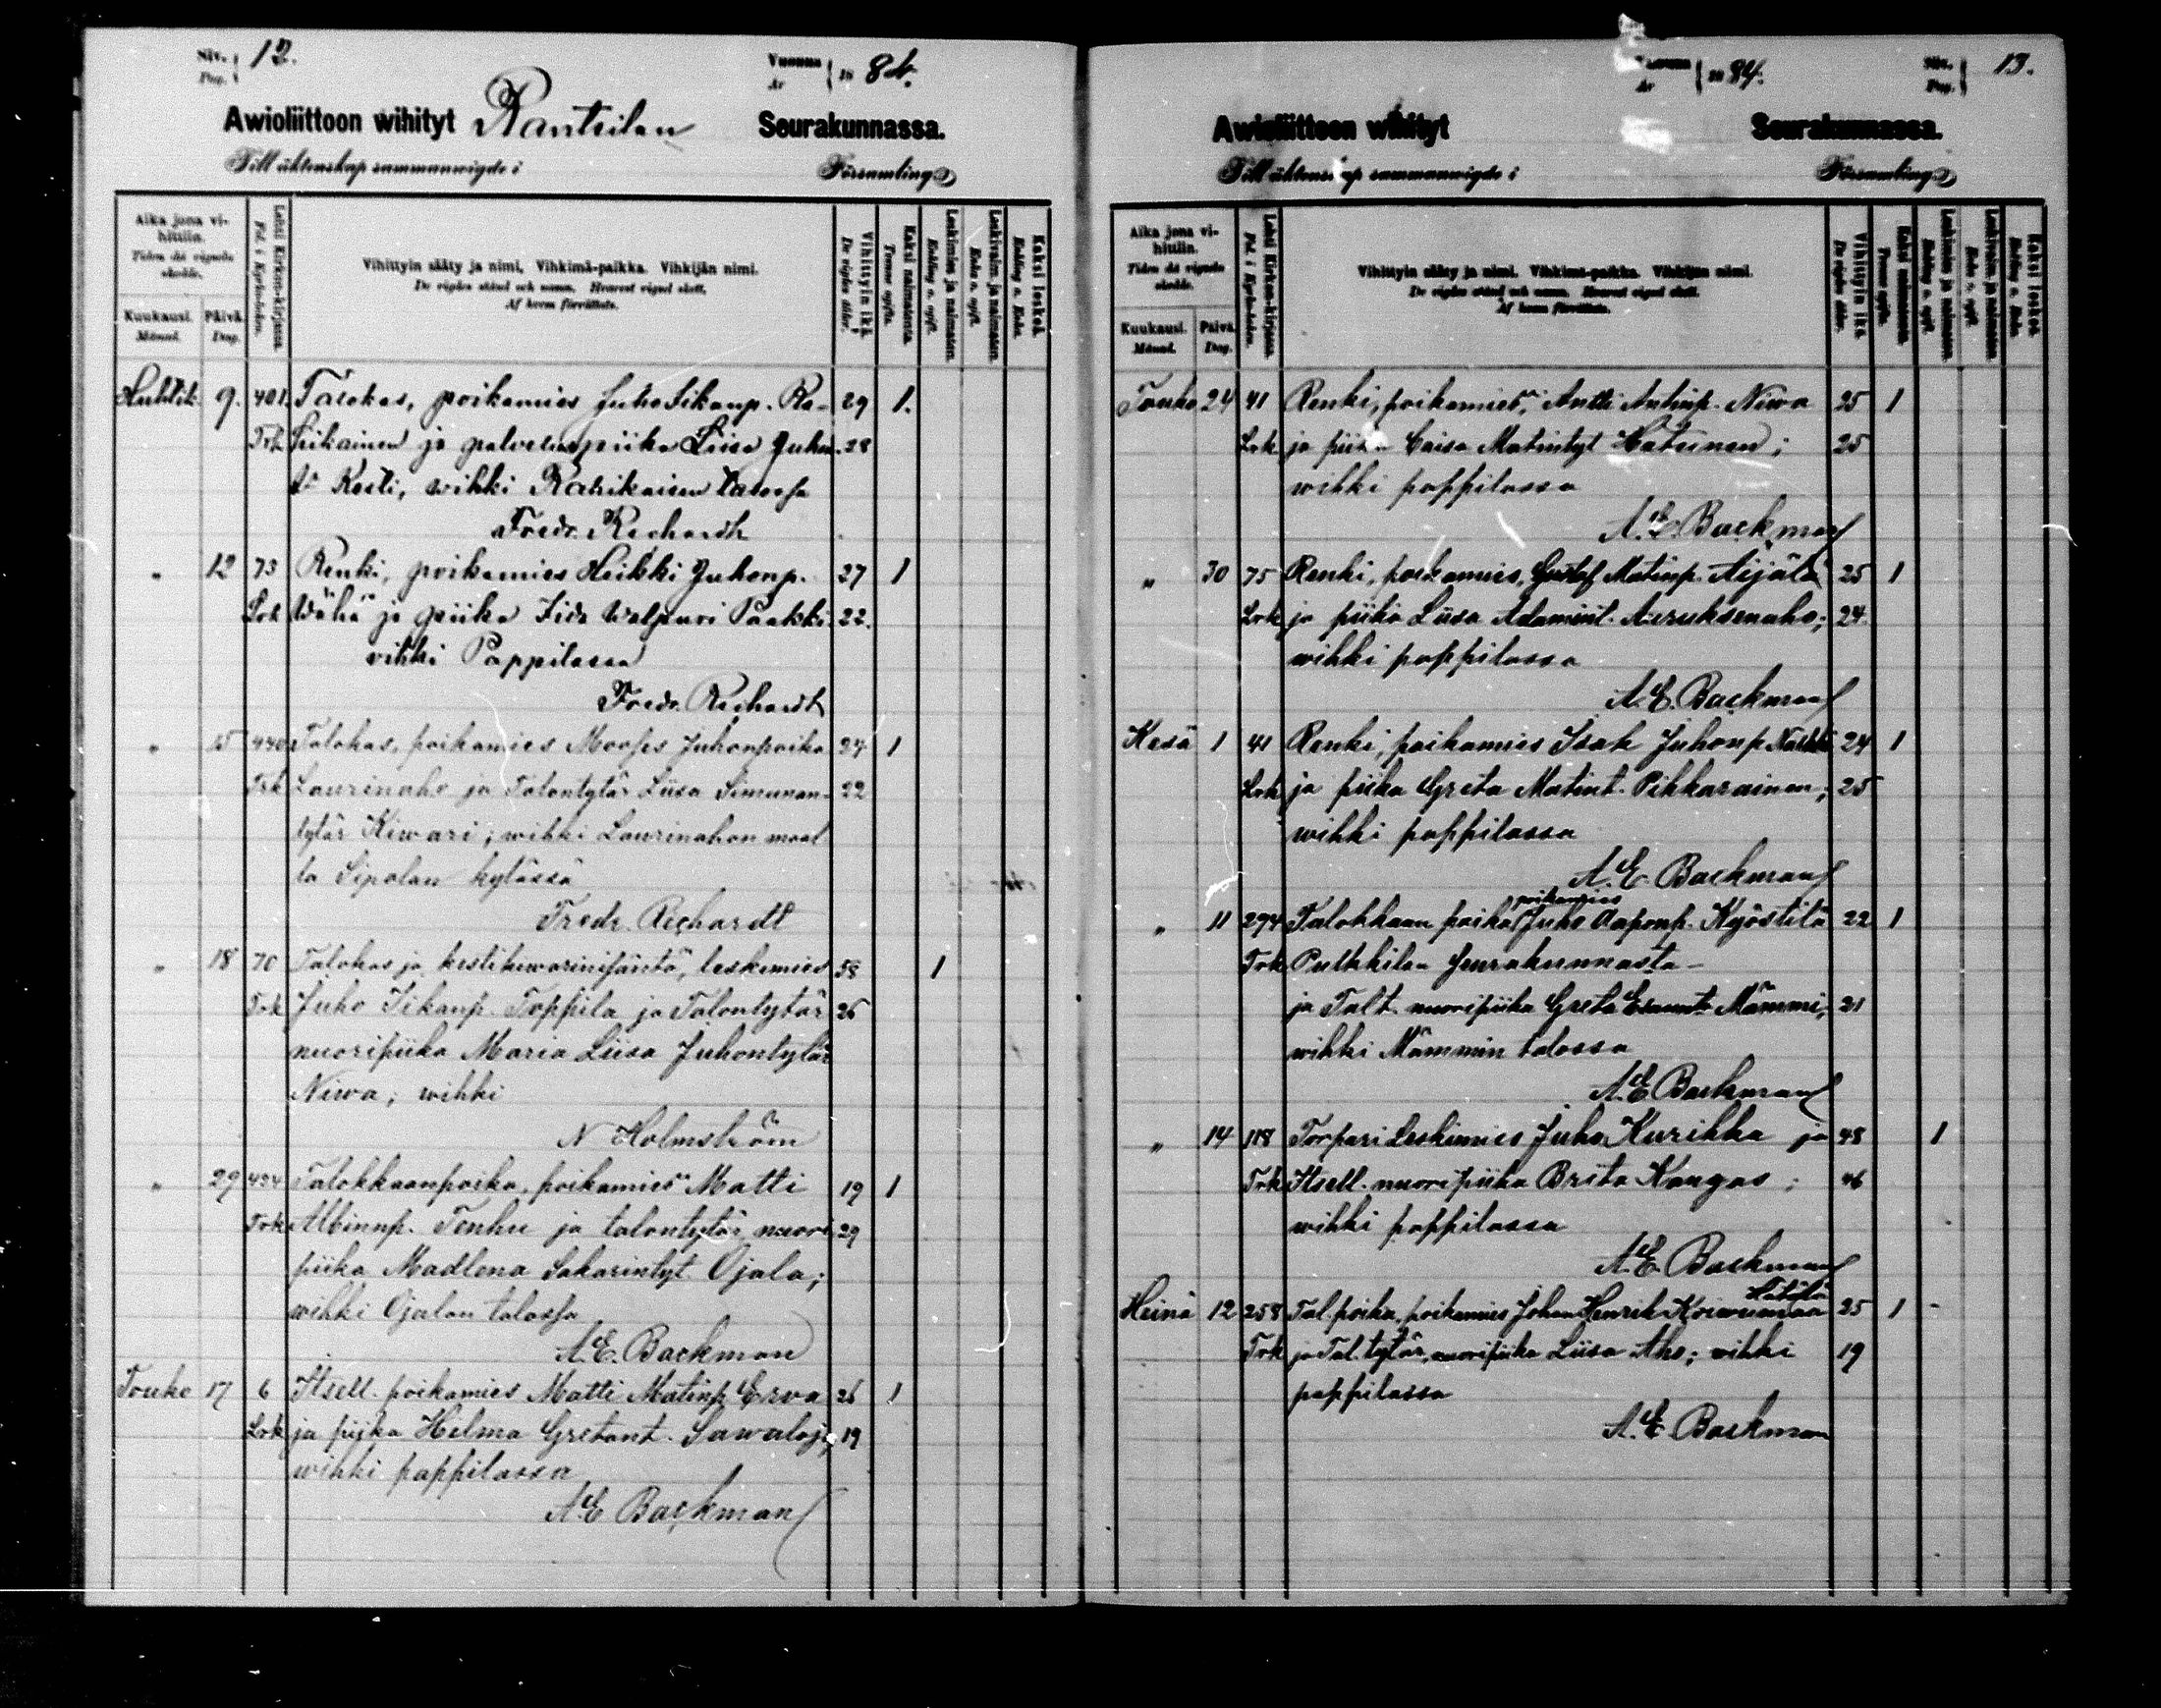 Siv. Pag. 12.
Vuonna År 1884.
Awioliittoon wihityt Rantsilan Seurakunnassa.
Till äktenskap sammanwigde i Församling
Aika jona vihittiin.
Tiden då vigseln skedde.
Kuukausi. Månad.
Päivä. Dag.
Lehti Kirkon-kirjassa.
Fol. i Kyrkoboken.
Vihittyin sääty ja nimi. Vihkimä-paikka. Vihkijän nimi.
De vigdas stånd och namn. Hvarest vigsel skett,
Af hvem förrättats.
Vihittyin ikä. De vigdas ålder.
Kaksi naimatonta.
Leskimies ja naimaton.
Leskivaimo ja naimaton.
Kaksi leskeä.
Huhtik. 9. 401. Talokas, poikamies Juho Iikanp. Ra- 29 1.
Trk sikainen ja palveluspiika Liisa Juhon- 28
t. Kesti, wihki Rahikaisen talossa
Fredr. Rechardt
" 12 73 Renki, poikamies Heikki Juhonp. 27 1
Lrk Wähä ja piika Iida Walpuri Paakki 22.
vihki Pappilassa
Fredr. Rechardt
" 15 440 Talokas, poikamies Mooses Juhonpoika 24 1
Trk Laurinaho ja Talontytär Liisa Simunan- 22
tytär Kiwari; wihki Laurinahon maal
la Sipolan kylässä
Fredr. Rechardt
" 18 70 Talokas ja kestikiwarinisäntä, leskimies 58 1
Trk Juho Iikanp. Toppila ja Talontytär 26
nuoripiika Maria Liisa Juhontytär
Niwa; wihki
N Holmström
" 29 424 Talokkaanpoika, poikamies Matti 19 1
Trk Albinnp. Tenhu ja talontytär nuori 29
piika Madlena Sakarintyt Ojala;
wihki Ojalan talossa
A.E. Backman
Touko 17 6 Itsell. poikamies Matti Matinp Erva 26 1
Lrk ja piika Helma Gretant. Sawaloja, 19
wihki pappilassa
A.E Backman
Vuonna År 1884.
Siv. Pag. 13.
Awioliittoon wihityt Seurakunnassa.
Till äktenskap sammanwigde i Församling
Aika jona vihittiin.
Tiden då vigseln skedde.
Kuukausi. Månad.
Päivä. Dag.
Lehti Kirkon-kirjassa.
Fol. i Kyrkoboken.
Vihittyin sääty ja nimi. Vihkimä-paikka. Vihkijän nimi.
De vigdas stånd och namn. Hvarest vigsel skett.
Af hvem förrättats.
Vihittyin ikä. De vigdas ålder.
Kaksi naimatonta.
Leskimies ja naimaton.
Leskivaimo ja naimaton.
Kaksi leskeä.
Touko 24 41 Renki, poikamies, Antti Antinp. Niwa 25 1
Lrk ja piika Caisa Matintyt Hatunen; 25
wihki pappilassa
A.E. Backman
" 30 75 Renki, poikamies, Gustaf Matinp. Äijälä 25 1
Lrk ja piika Liisa Adamint. Auruksenaho; 24
wihki pappilassa
A.E. Backman
Kesä 1 41 Renki, poikamies Isak Juhonp 24 1
Lrk ja piika Greta Matint. Pikkarainen; 25
wihki pappilassa
A.E. Backman
poikamies
" 11 294 Talokkaan poika Juho Aaponp. Kyöstilä 22 1
Trk Pulkkilan seurakunnasta -
ja Talt. nuoripiika Greta Mämmi, 21
wihki Mämmin talossa
A.E Backman
" 14 118 Torpari Leskimies Juho Kurikka ja 48 1
Trk Itsell. nuoripiika Brita Kangas; 46
wihki pappilassa
A.E. Backman
Hätälä
Heinä 12 258 Tal. poika, poikamies Johan Henrik Koiwumaa 25 1
Trk ja Tal. tytär, nuoripiika Liisa Aho; wihki 19
pappilassa
A.E. Backman